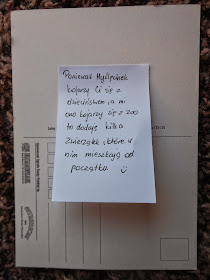 Ponieważ Myślęcinek
kojarzy Ci się z
dzieciństwem, a mi
ono kojarzy się z zoo
to dodaję kilka
zwierzątek, które w
nim mieszkają od
początku ☺